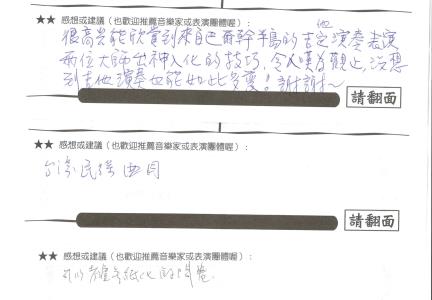 ★★ 感想或建議（也歡迎推薦音樂家或表演團體喔）：
很高興能欣賞到來自巴爾幹半島的吉他演奏表演
兩位大師出神入化的技巧，令人嘆為觀止，沒想
到吉他演奏也能如此多變！謝謝～
請翻面
★★ 感想或建議（也歡迎推薦音樂家或表演團體喔）：
台灣民謠曲目
請翻面
★★ 感想或建議（也歡迎推薦音樂家或表演團體喔）：